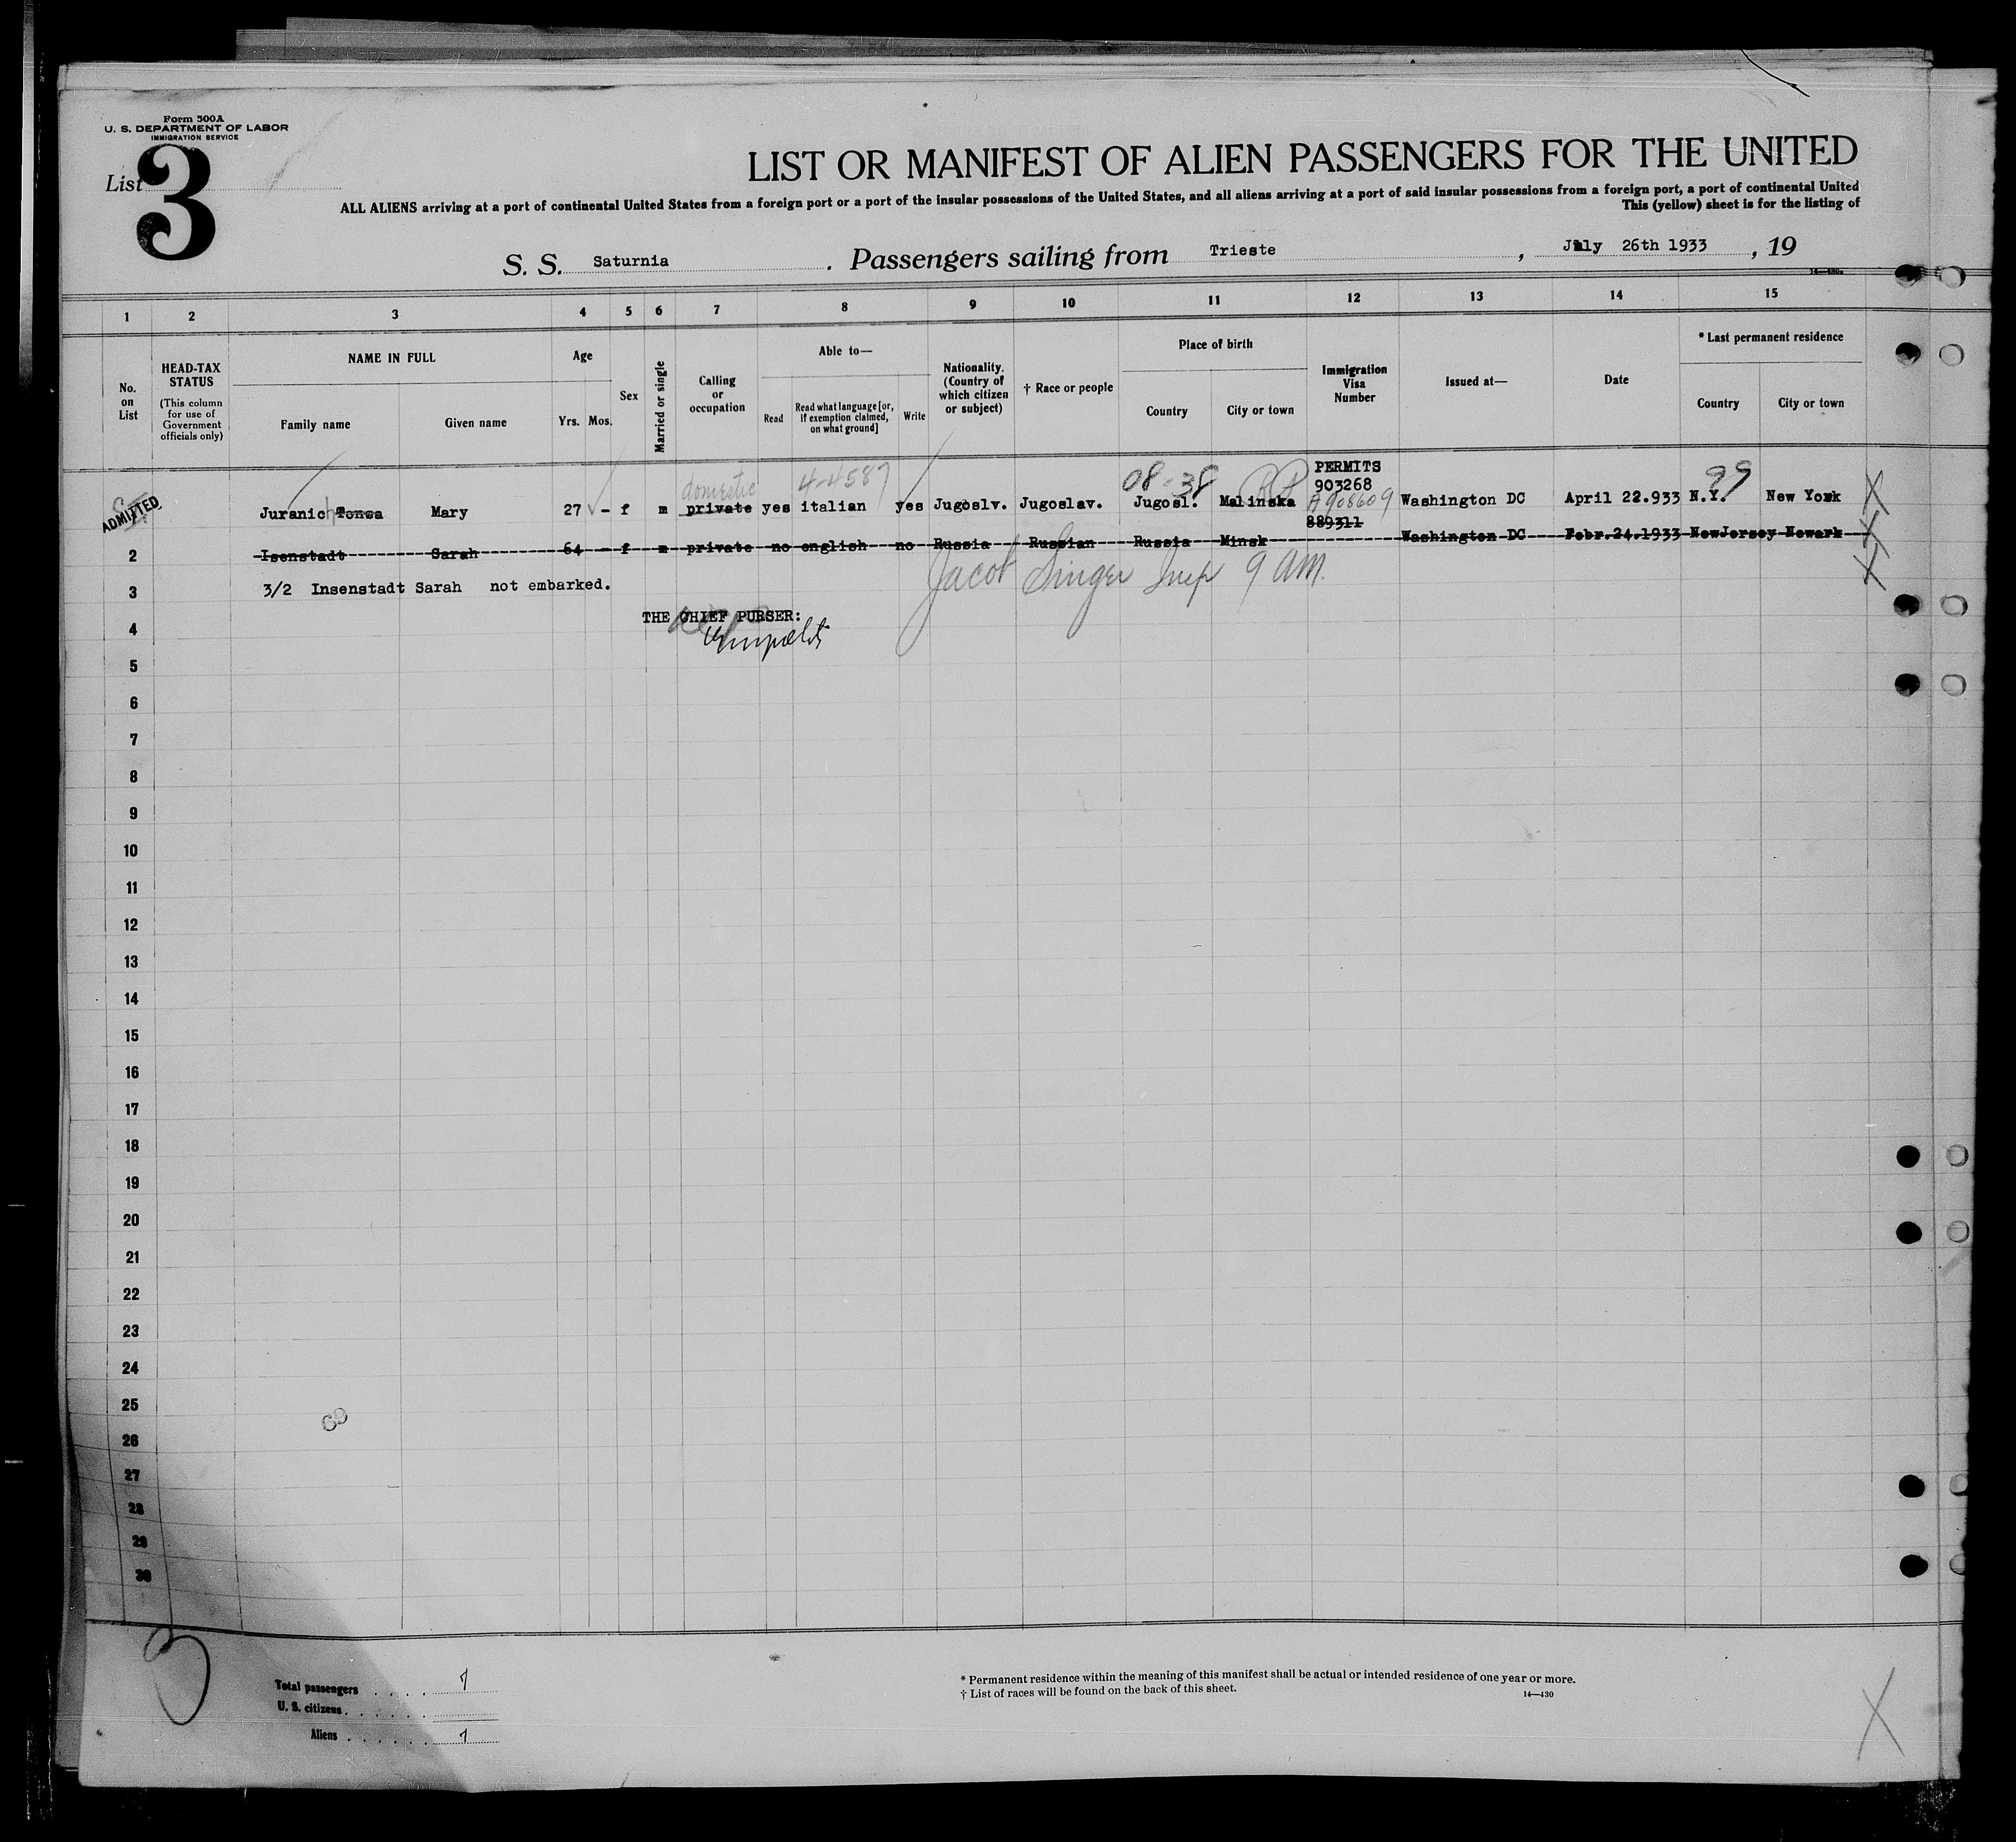 Form 500A
U. S. DEPARTMENT OF LABOR
IMMIGRATION SERVICE
List 3
LIST OR MANIFEST OF ALIEN PASSENGERS FOR THE UNITED
ALL ALIENS arriving at a port of continental United States from a foreign port or a port of the insular possessions of the United States, and all aliens arriving at a port of said insular possessions from a foreign port, a port of continental United
This (yellow) sheet is for the listing of
S. S. Saturnia . Passengers sailing from Trieste , July 26th 1933 , 19
14—430a
1 2 3 4 5 6 7 8 9 10 11 12 13 14 15
No. on List
HEAD-TAX STATUS (This column for use of Government officials only)
NAME IN FULL
Family name Given name
Age
Yrs. Mos.
Sex
Married or single
Calling or occupation
Able to—
Read Read what language [or, if exemption claimed, on what ground] Write
Nationality. (Country of which citizen or subject)
† Race or people
Place of birth
Country City or town
Immigration Visa Number
Issued at—
Date
* Last permanent residence
Country City or town
domestic 4-4587 08-38 PERMITS 99
903268
ADMITTED Juranic Tonsa Mary 27 - f m private yes italian yes Jugoslv. Jugoslav. Jugosl. Malinska A908609 Washington DC April 22.933 N.Y. New York
889311
2 Isenstadt Sarah 64 - f m private no english no Russia Russian Russia Minsk Washington DC Febr.24.1933 NewJersey Newark
3 3/2 Insenstadt Sarah not embarked. Jacob Singer Insp 9 AM.
4 THE CHIEF PURSER:
5
6
7
8
9
10
11
12
13
14
15
16
17
18
19
20
21
22
23
24
25
26
27
28
29
30
69
3
Total passengers . . . . 1
U. S. citizens . . . . . .
Aliens . . . . . . 1
* Permanent residence within the meaning of this manifest shall be actual or intended residence of one year or more.
† List of races will be found on the back of this sheet.
14—430